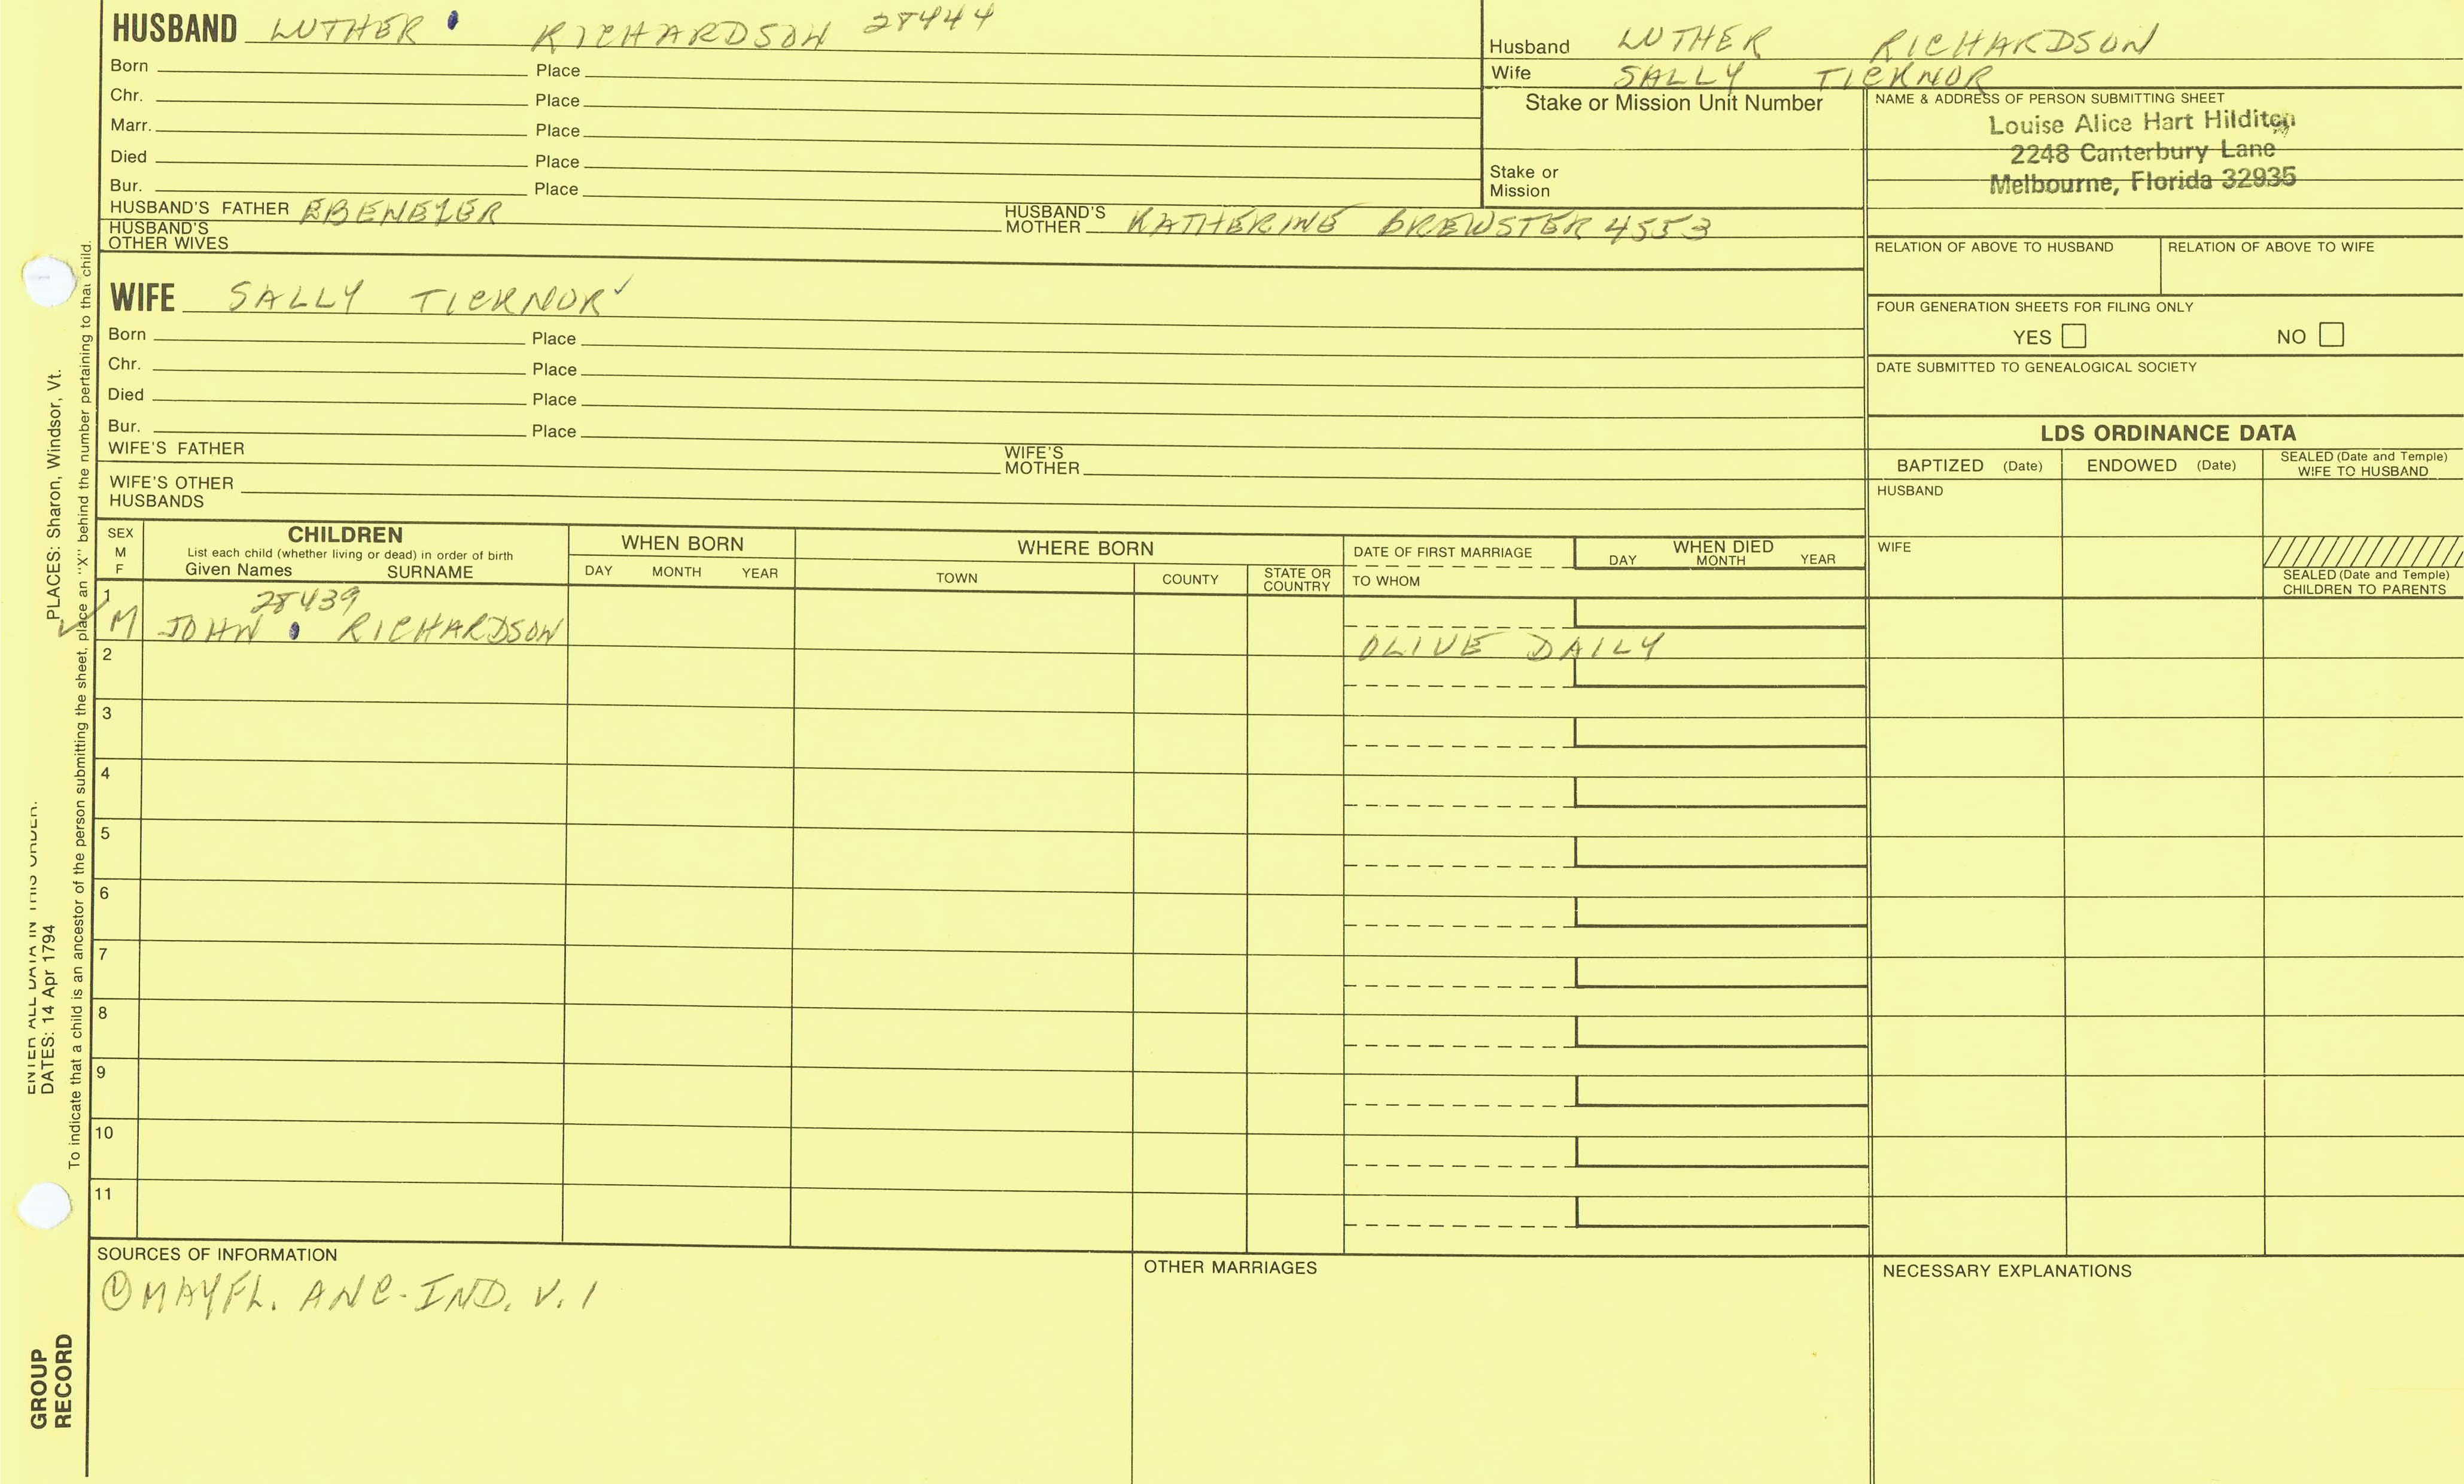 HUSBAND LUTHER RICHARDSON 28444
Born Place
Chr. Place
Marr. Place
Died Place
Bur. Place
HUSBAND'S FATHER EBENEZER HUSBAND'S MOTHER KATHERINE BREWSTER 4553
HUSBAND'S OTHER WIVES
Husband LUTHER RICHARDSON
Wife SALLY TICKNOR
Stake or Mission Unit Number
Stake or Mission
NAME & ADDRESS OF PERSON SUBMITTING SHEET
Louise Alice Hart Hilditch
2248 Canterbury Lane
Melbourne, Florida 32935
RELATION OF ABOVE TO HUSBAND RELATION OF ABOVE TO WIFE
FOUR GENERATION SHEETS FOR FILING ONLY
YES NO
DATE SUBMITTED TO GENEALOGICAL SOCIETY
WIFE SALLY TICKNOR ✓
Born Place
Chr. Place
Died Place
Bur. Place
WIFE'S FATHER WIFE'S MOTHER
WIFE'S OTHER HUSBANDS
LDS ORDINANCE DATA
BAPTIZED (Date) ENDOWED (Date) SEALED (Date and Temple) WIFE TO HUSBAND
HUSBAND
WIFE
SEALED (Date and Temple) CHILDREN TO PARENTS
SEX M F
CHILDREN
List each child (whether living or dead) in order of birth
Given Names SURNAME
WHEN BORN
DAY MONTH YEAR
WHERE BORN
TOWN COUNTY STATE OR COUNTRY
DATE OF FIRST MARRIAGE
TO WHOM
WHEN DIED
DAY MONTH YEAR
1 28439
✓ M JOHN RICHARDSON OLIVE DAILY
2
3
4
5
6
7
8
9
10
11
SOURCES OF INFORMATION
① MAYFL. ANC. IND. V. 1
OTHER MARRIAGES
NECESSARY EXPLANATIONS
ENTER ALL DATA IN THIS ORDER.
DATES: 14 Apr 1794 PLACES: Sharon, Windsor, Vt.
To indicate that a child is an ancestor of the person submitting the sheet, place an "X" behind the number pertaining to that child.
GROUP
RECORD